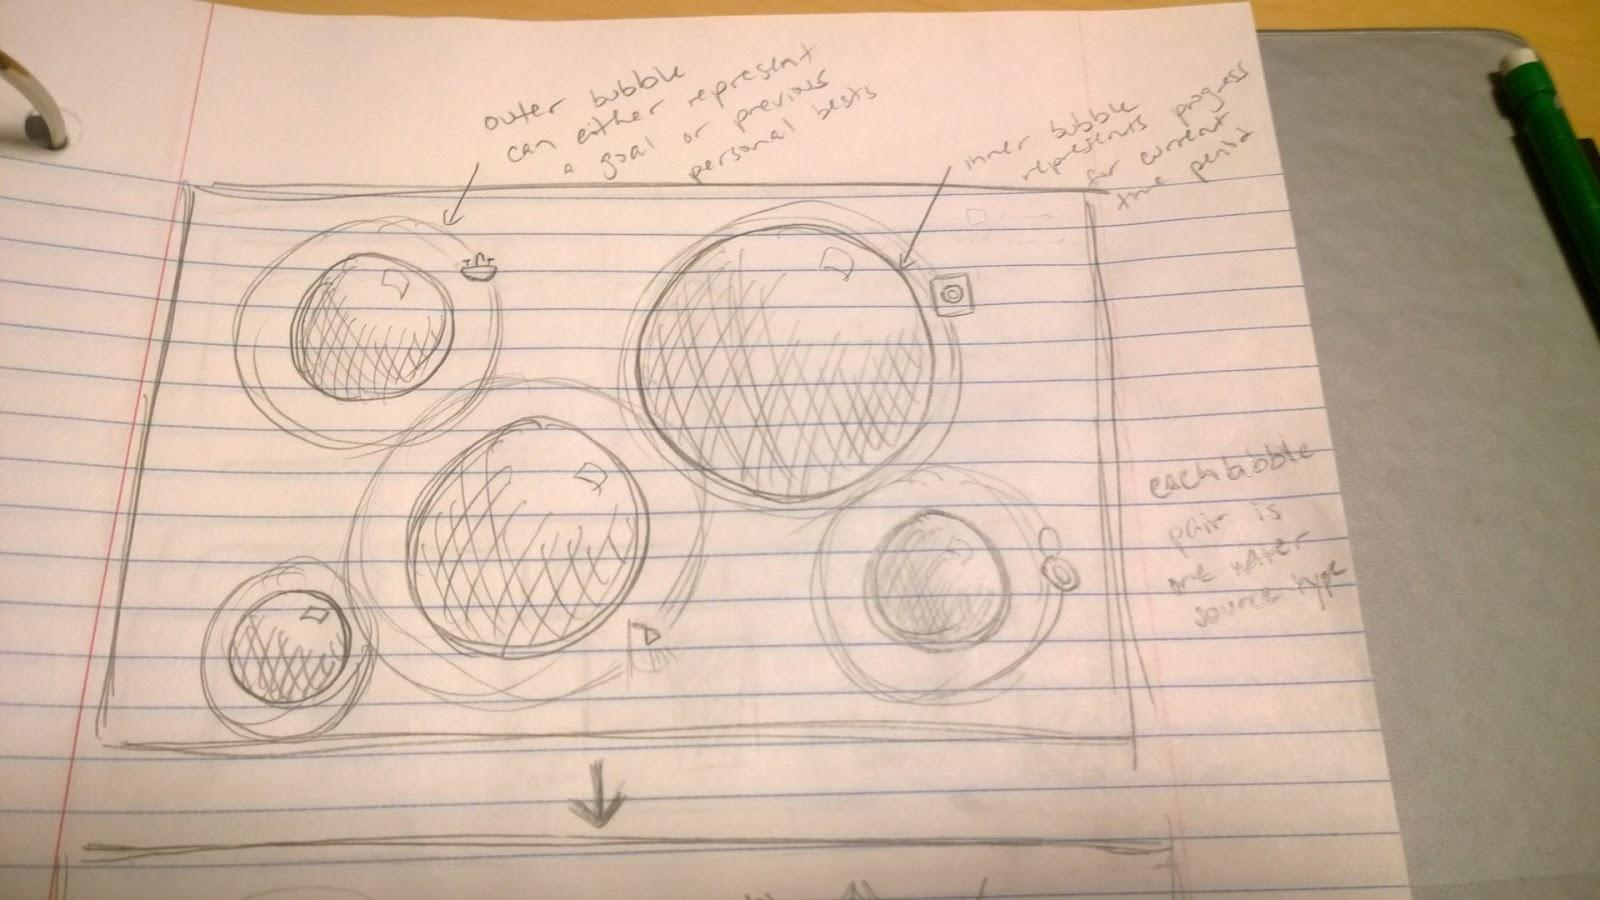 outer bubble
can either represent
a goal or previous
personal bests
inner bubble
represents progress
for current
time period
each bubble
pair is
one water
source type